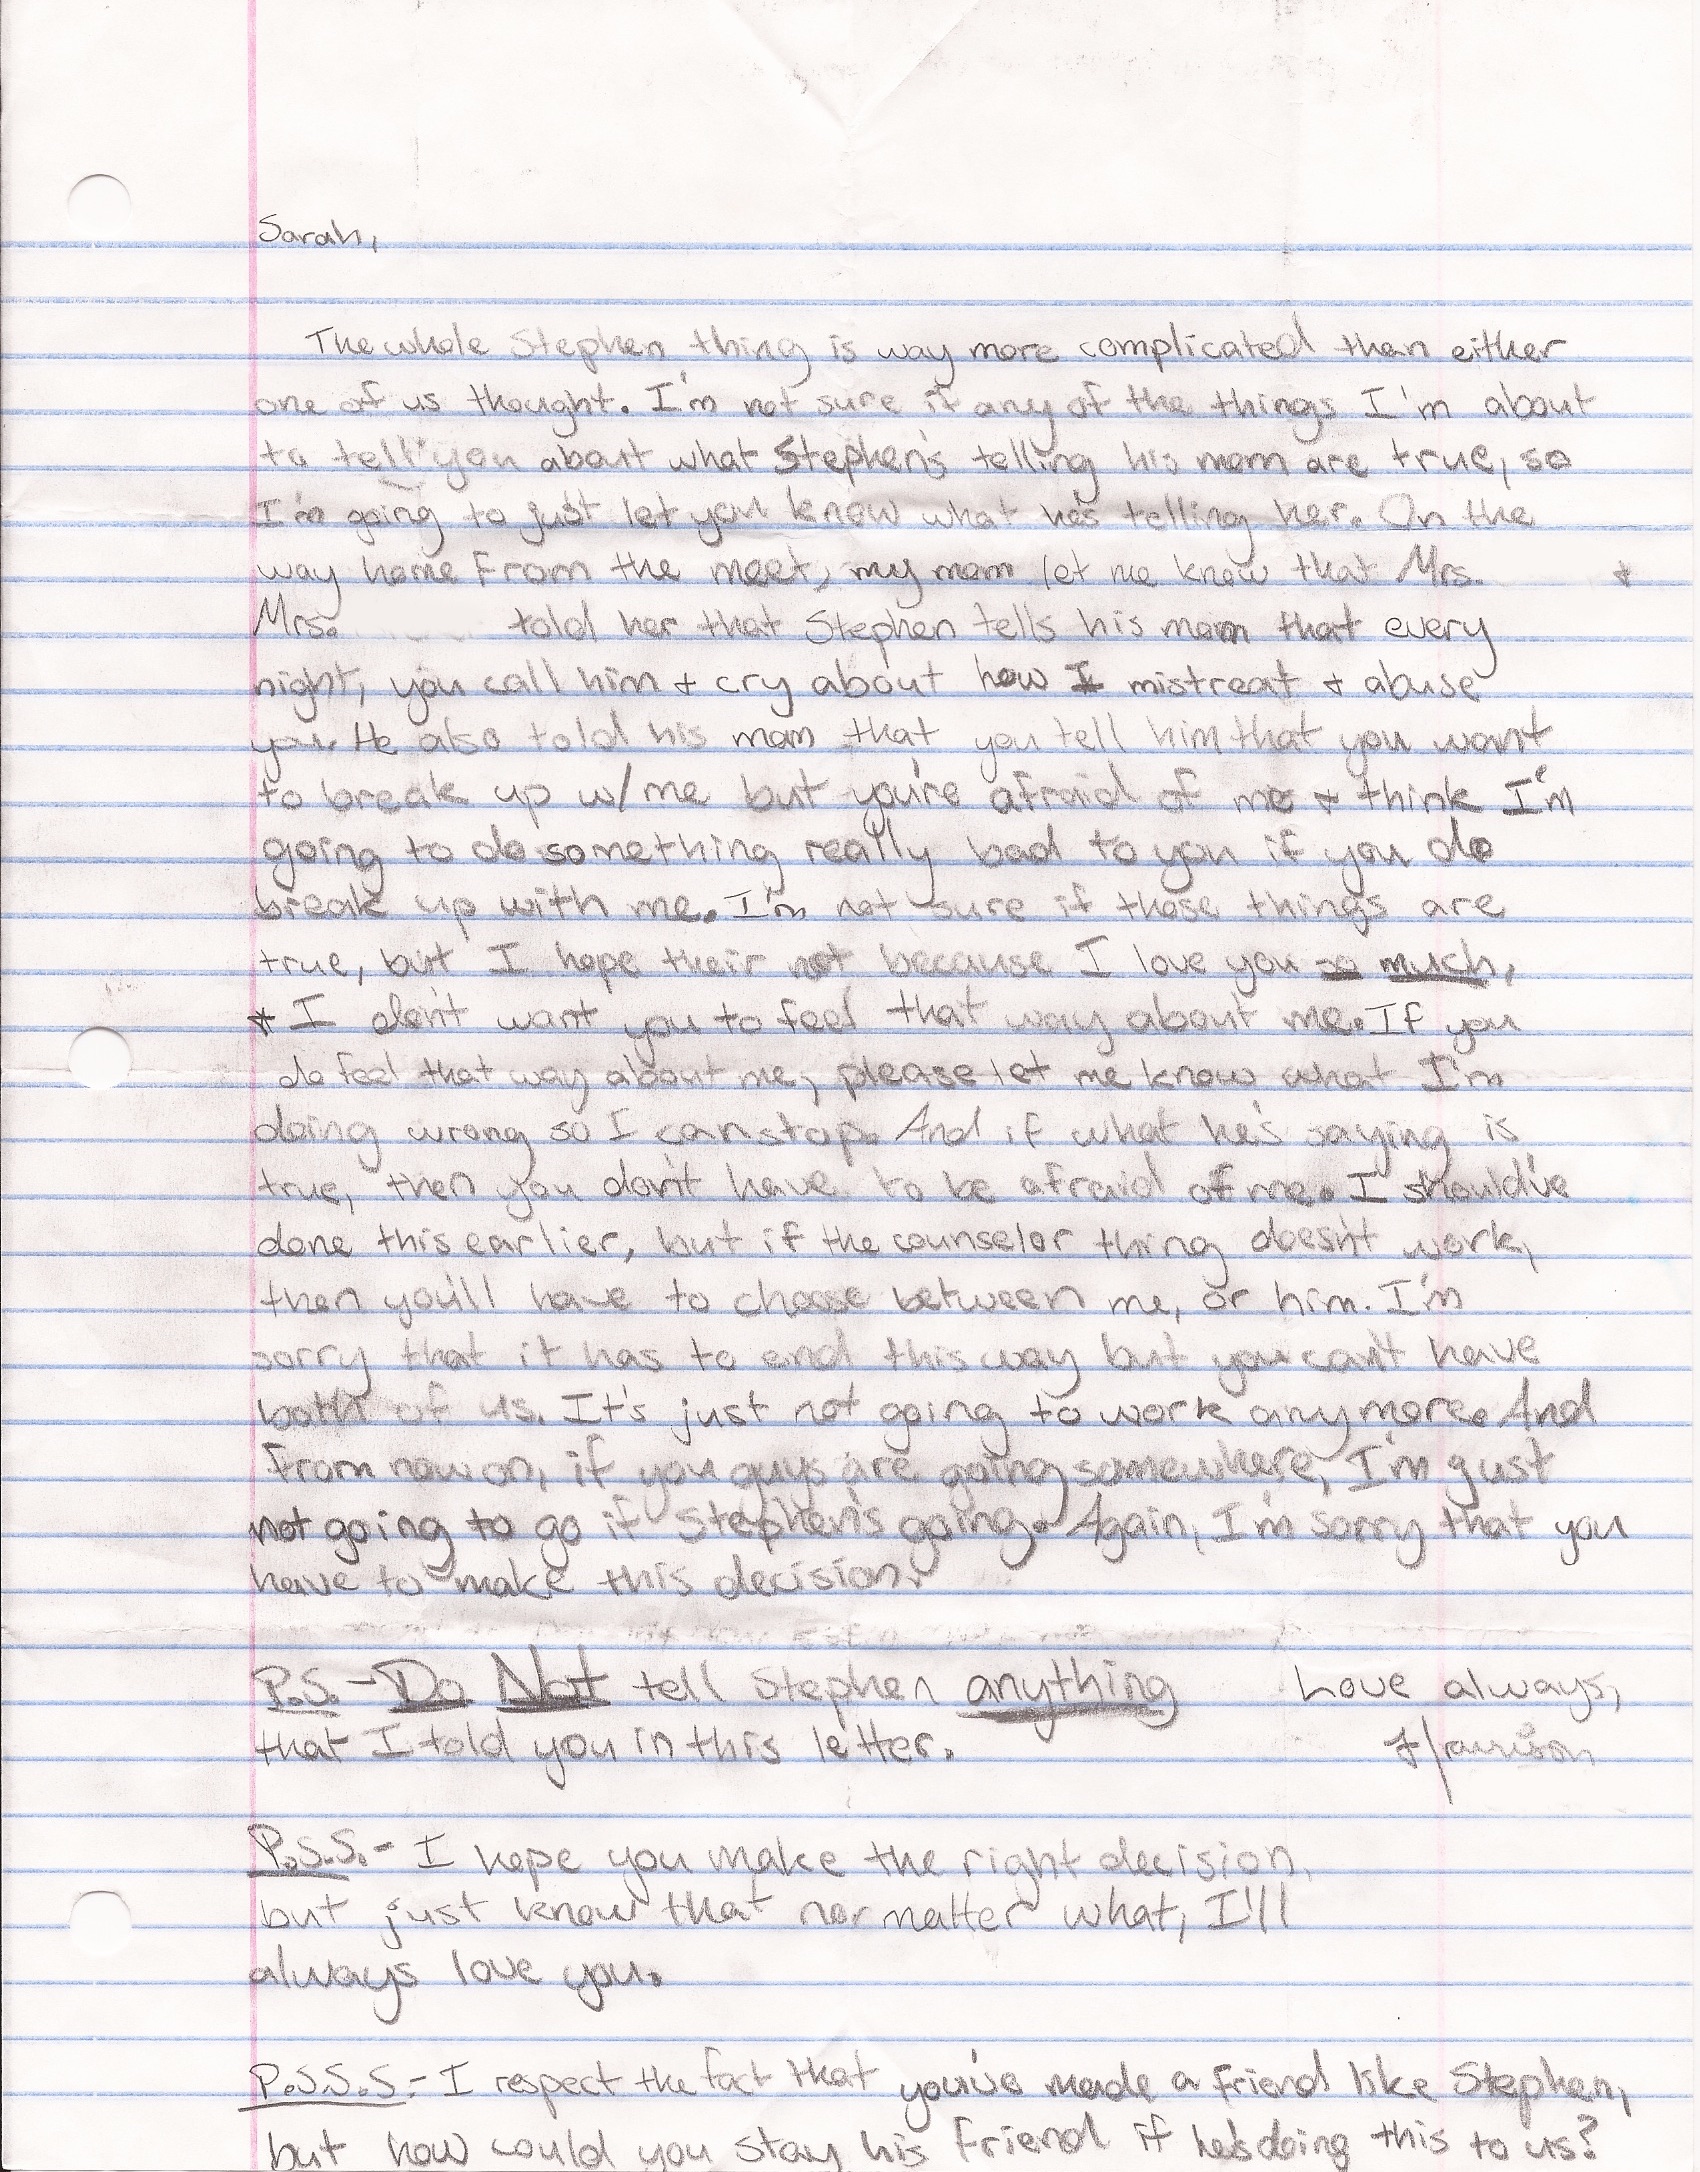 Sarah,
The whole Stephen thing is way more complicated than either
one of us thought. I'm not sure if any of the things I'm about
to tell you about what Stephen's telling his mom are true, so
I'm going to just let you know what he's telling her. On the
way home from the meet, my mom let me know that Mrs. +
Mrs. told her that Stephen tells his mom that every
night, you call him + cry about how I mistreat + abuse
you. He also told his mom that you tell him that you want
to break up w/ me but you're afraid of me + think I'm
going to do something really bad to you if you do
break up with me. I'm not sure if those things are
true, but I hope their not because I love you so much,
* I don't want you to feel that way about me. If you
do feel that way about me, please let me know what I'm
doing wrong so I can stop. And if what he's saying is
true, then you don't have to be afraid of me. I should've
done this earlier, but if the counselor thing doesn't work,
then you'll have to choose between me, or him. I'm
sorry that it has to end this way but you can't have
both of us. It's just not going to work anymore. And
from now on, if you guys are going somewhere, I'm just
not going to go if Stephen's going. Again, I'm sorry that you
have to make this decision.
P.S. - Do Not tell Stephen anything Love always,
that I told you in this letter. Harrison
P.S.S. - I hope you make the right decision,
but just know that no matter what, I'll
always love you.
P.S.S.S. - I respect the fact that you've made a friend like Stephen,
but how could you stay his friend if he's doing this to us?